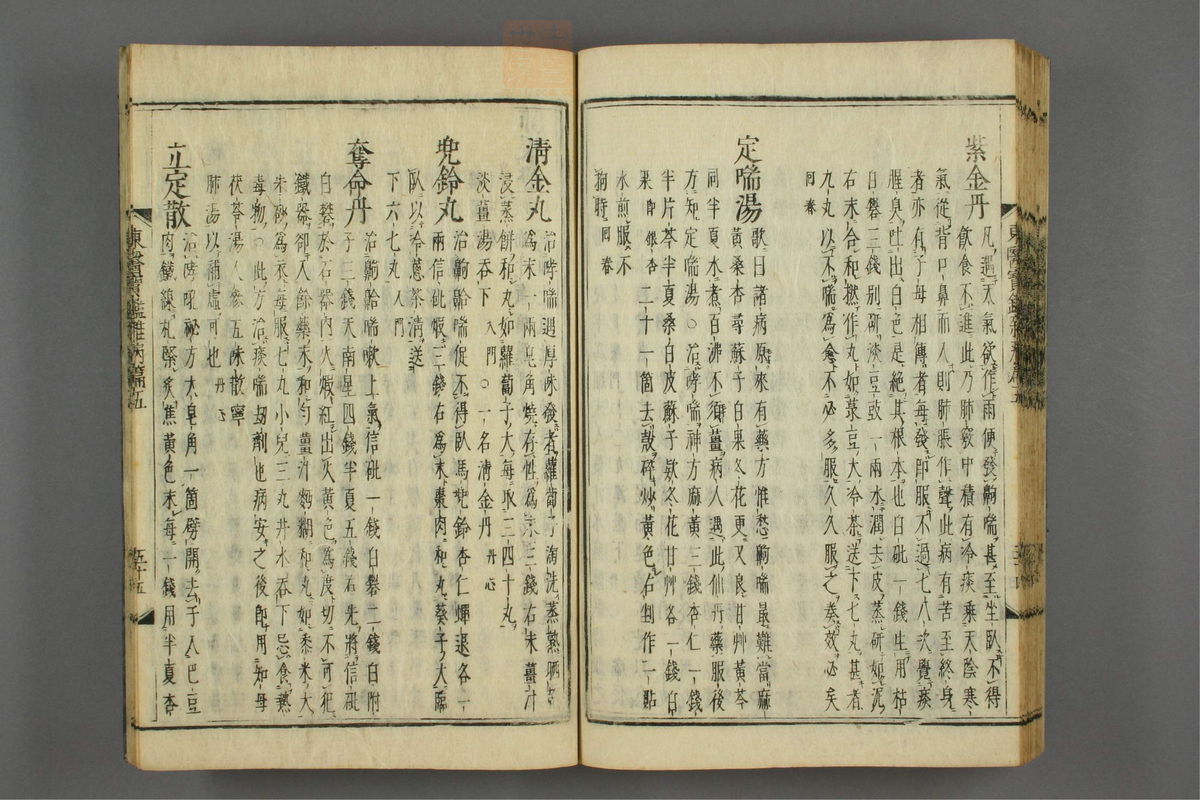 紫金丹
凡遇天氣欲作雨便發齁喘甚至坐臥不得
飮食不進此乃肺竅中積有冷痰乘天陰寒
氣從背口鼻而入則肺脹作聲此病有苦至終身
者亦有子母相傳者每發卽服不過七八次覺痰
腥臭吐出白色是絶其根本也白砒一錢生用枯
白礬三錢別硏淡豆豉一兩水潤去皮蒸硏如泥
右末合和撚作丸如菉豆大冷茶送下七丸甚者
九丸以不喘爲愈不必多服久久服之奏效必矣
同春
定喘湯
歌曰諸病原來有藥方惟愁齁喘最難當麻
黃桑杏尋蘇子白果冬花更又良甘艸黃芩
同半夏水煮百沸不須薑病人遇此仙丹藥服後
方知定喘湯○治哮喘神方麻黃三錢杏仁一錢
半片芩半夏桑白皮蘇子欵冬花甘艸各一錢白
果卽銀杏二十一箇去殼碎炒黃色右剉作一貼
水煎服不
拘時同春
清金丸
治哮喘遇厚味發者蘿葍子淘洗蒸熟晒乾
爲末一兩皂角燒存性爲末三錢右末薑汁
浸蒸餠和丸如蘿葍子大每取三四十丸
淡薑湯呑下入門○一名淸金丹丹心
兜鈴丸
治齁𪖙喘促不得臥馬兜鈴杏仁蟬退各二
兩信砒煆三錢右爲末棗肉和丸葵子大臨
臥以冷蔥茶淸送
下六七丸入門
奪命丹
治齁𪖙喘嗽上氣信砒一錢白礬二錢白附
子三錢天南星四錢半夏五錢右先將信砒
白礬於石器內火煆紅出火黃色爲度切不可犯
鐵器卻入餘藥末和勻薑汁麪糊和丸如黍米大
朱砂爲衣每服七丸小兒三丸井水呑下忌食熱
毒物○此方治痰喘劫劑也病安之後卽用知母
茯苓湯人參五味散寧
肺湯以補虛可也丹心
立定散
治哮吼秘方大皂角一箇劈開去子入巴豆
肉鐵線札緊炙焦黃色末每一錢用半夏杏
東醫寶鑑雜病篇五
五十五